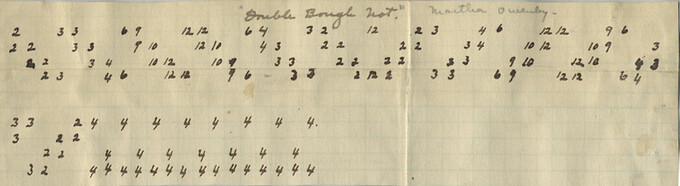 "Double Bough Not." Martha Owenby.
2 3 3 6 9 12 12 6 4 3 2 12 2 3 4 6 12 12 9 6
2 2 3 3 9 10 12 10 4 3 2 2 2 2 3 4 10 12 10 9 3
2 2 3 4 10 12 10 9 3 3 2 2 2 2 3 3 9 10 12 10 9 3
2 3 4 6 12 12 9 6 3 3 2 12 2 3 3 6 9 12 12 6 4
3 3 2 4 4 4 4 4 4 4 4.
3 2 2
2 2 4 4 4 4 4 4 4
3 2 4 4 4 4 4 4 4 4 4 4 4 4 4 4 4